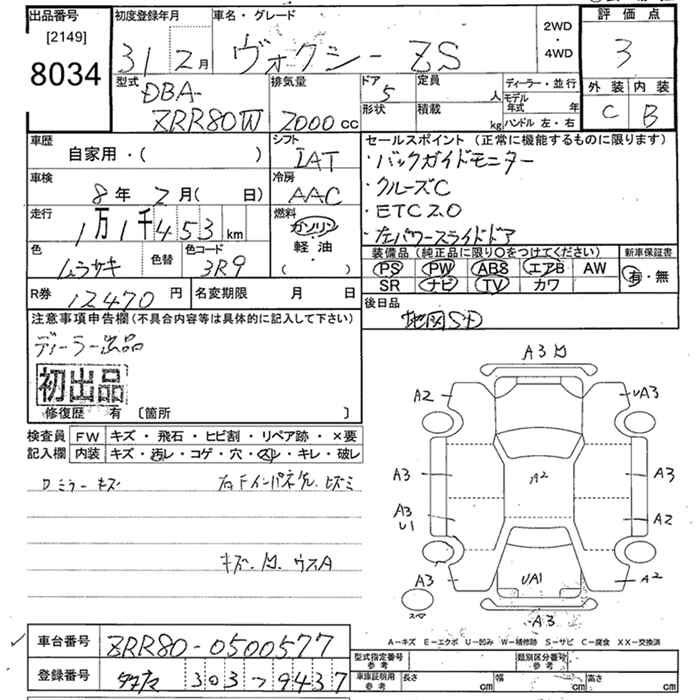 出品番号 初度登録年月 車名・グレード 2WD ・ 4WD 評価点
[2149]
8034 31 2月 ヴォクシー ZS 3
型式 排気量 ドア 定員 ディーラー・並行 外装 内装
DBA- 5 人 モデル年式 年 C B
ZRR80W 2000cc 形状 積載 kg ハンドル 左・右
車歴 シフト セールスポイント (正常に機能するものに限ります)
自家用・( ) IAT ・バックガイドモニター
車検 冷房 ・クルーズC
8年 2月( 日) AAC ・ETC2.0
走行 燃料 ・左パワースライドドア
1万1千453km ガソリン
軽油
( )
色 色替 色コード 装備品(純正品に限り〇をつけてください) 新車保証書
ムラサキ 3R9 PS PW ABS エアB AW 有・無
SR ナビ TV カワ
R券 12470円 名変期限 月 日 後日品
地図SD
注意事項申告欄(不具合内容等は具体的に記入して下さい)
ディーラー出品
初出品
修復歴 有 〔箇所 〕
検査員 FW キズ・飛石・ヒビ割・リペア跡・×要
記入欄 内装 キズ・汚レ・コゲ・穴・スレ・キレ・破レ
ロミラーキズ 右Fインパネグレ ヒズミ
キズ、凹、ウスA
A3凹
A2 UA3
A3 A2 A3
A3 U1 A2
A3 UA1 A2
スペ A3
A-キズ E-エクボ U-凹み W-補修跡 S-サビ C-腐食 XX-交換済
車台番号 ZRR80-0500577
型式指定番号 参考 類別区分番号 参考
登録番号 303 9437
車庫証明用 参考 長さ cm 幅 cm 高さ cm